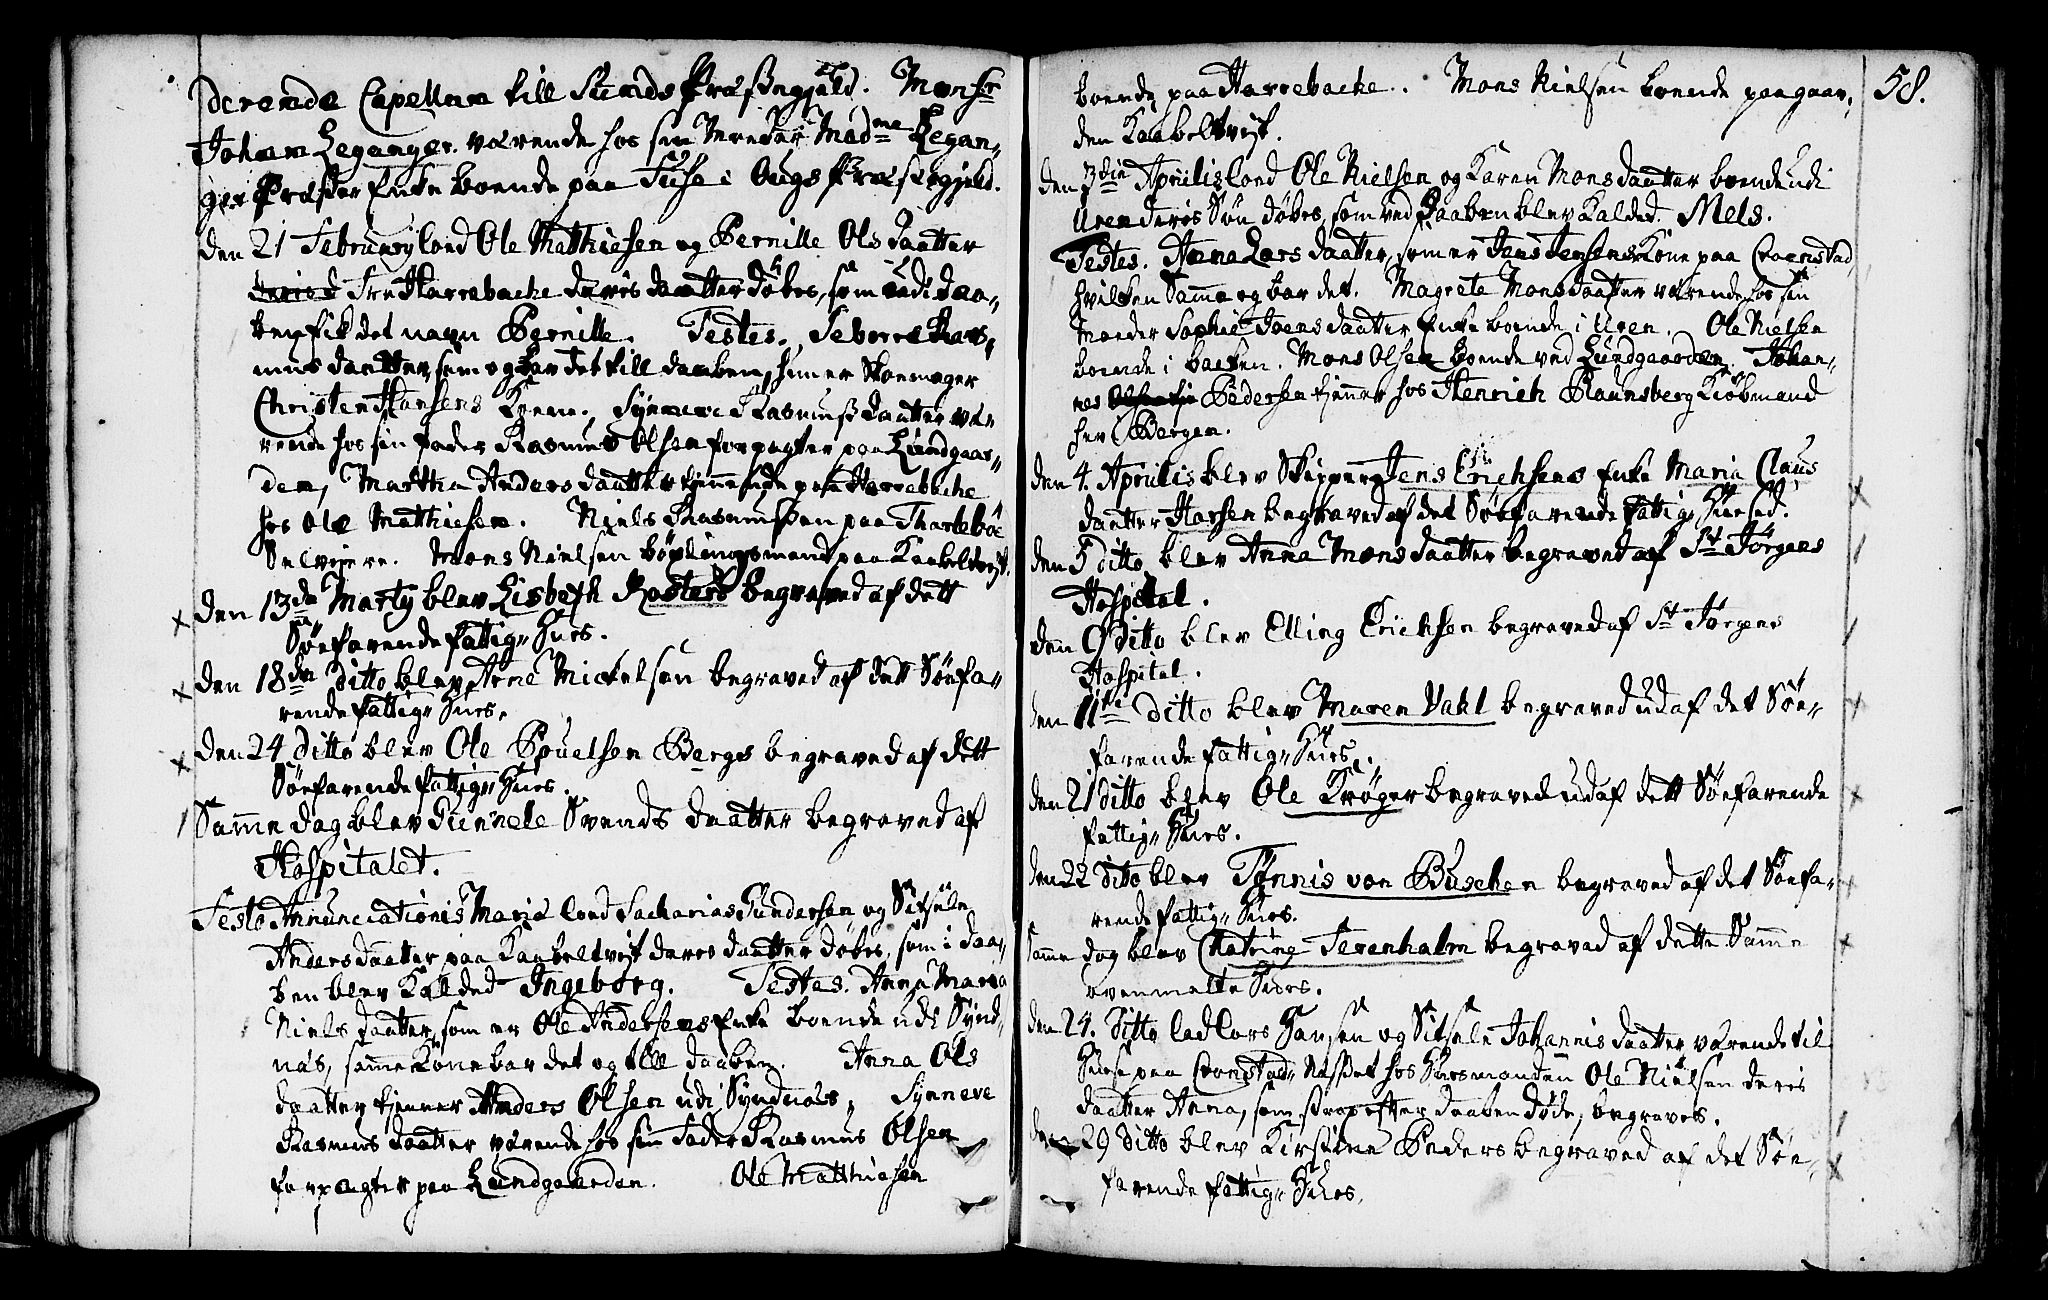 derende Capellan till Sunds Præstegjeld. Monsr
Johan Leganger. værende hos sin Moder Madme Legan-
ger Præste Enke boende paa Tuse i Ougs Præstegjeld.
den 21 February lod Ole Matthiesen og Pernille Ols daatter
Fru Harrebache deris daatter døbes, som udi daa-
ben fik det nayn Pernille. Testes. Seborre Ras-
mus daatter, som og bar det till daaben, hun er Skoemager
Christen Hansens Kone. Synneve Rasmus daatter væ-
rende hos sin fader Rasmus Olsen forpagter paa Lundgaar-
den, Martha Anders daatter tjennende paa Harrebache
hos Ole Mathiesen. Niels Rasmussen paa Thartebøe
Selveiere. Mons Nielsen böxlingsmand paa Kaabeltvejt.
den 13de Marty blev Lisbeth Rosters begraved af dett
Søefarende fattig Huus.
den 18den ditto blev Arne Mickelsen begraved af dett Søefa-
rende fattig Huus.
den 24 ditto blev Ole Pouelsen Berge begraved af dett
Søefarende fattig Huus.
Samme dag blev Gunnele Svends daatter begraved af
Hospitalet.
Festo Annunciationis Mariæ lod Sacharias Gundersen og Sitsele
Anders daatter paa Kaabeltvejt deres daatter døbes, som i daa-
ben blev kalded Ingeborg. Testes. Anna Maria
Niels daatter, som er Ole Andersens Enke boende udi Synd-
nas, samme Kone bar det og till daaben. Anna Ols
daatter tjenner Anders Olsen udi Syndnas, Synneve
Rasmus daatter værende hos sin Fader Rasmus Olsen
forpagter paa Lundgaarden. Ole Matthiesen
58.
boende paa Harrebache. Mons Nielsen boende paa gaar-
den Kaabeltvejt.
den 3die Aprilis lod Ole Nielsen og Karen Monsdaatter boende udi
Uren deris Søn døbes, som ved daaben blev kalded. Mels.
Testes. Anna Lars daatter, som er Jens Jensens Kone paa Cronstad,
hvilken Samme og bar det. Magrete Monsdaatter værende hos sin
moeder Sophie Joens daatter Enke boende i Uren. Ole Nielsen
boende i backen. Mons Olsen boende ved Lundgaarden. Johan-
nes Pedersen tjenner hos Henrich Raunsberg Kiøbmand
her i Bergen.
den 4. Aprilis blev Skipper Jens Erichsens Enke Maria Claus
daatter Harsen begraved af det Søefarende fattig Huused.
den 5 ditto blev Anna Monsdaatter begraved af St Jørgens
Hospital.
den 9 ditto blev Elling Erichsen begraved af St Jørgens
Hospital.
den 11te ditto blev Maren Vahl begraved ud af det Søe-
farende fattig Huus.
den 21 ditto blev Ole Krøger begraved ud af dett Søefarende
fattig Huus.
den 22 ditto blev Tønnis von Buschen begraved af det Søefa-
rende fattig Huus.
Samme dag blev Chatrine Terenholm begraved af dette Samme
ovenmelte Huus.
den 24. ditto lod Lars Hansen og Sitsele Johannis daatter værende til
Huuse paa Cronstad Nesset hos Huusmanden Ole Nielsen deris
daatter Anna, som strax efter daaben døde, begraves.
den 29 ditto blev Kirstine Peders begraved af det Søe-
farende fattig Huus.